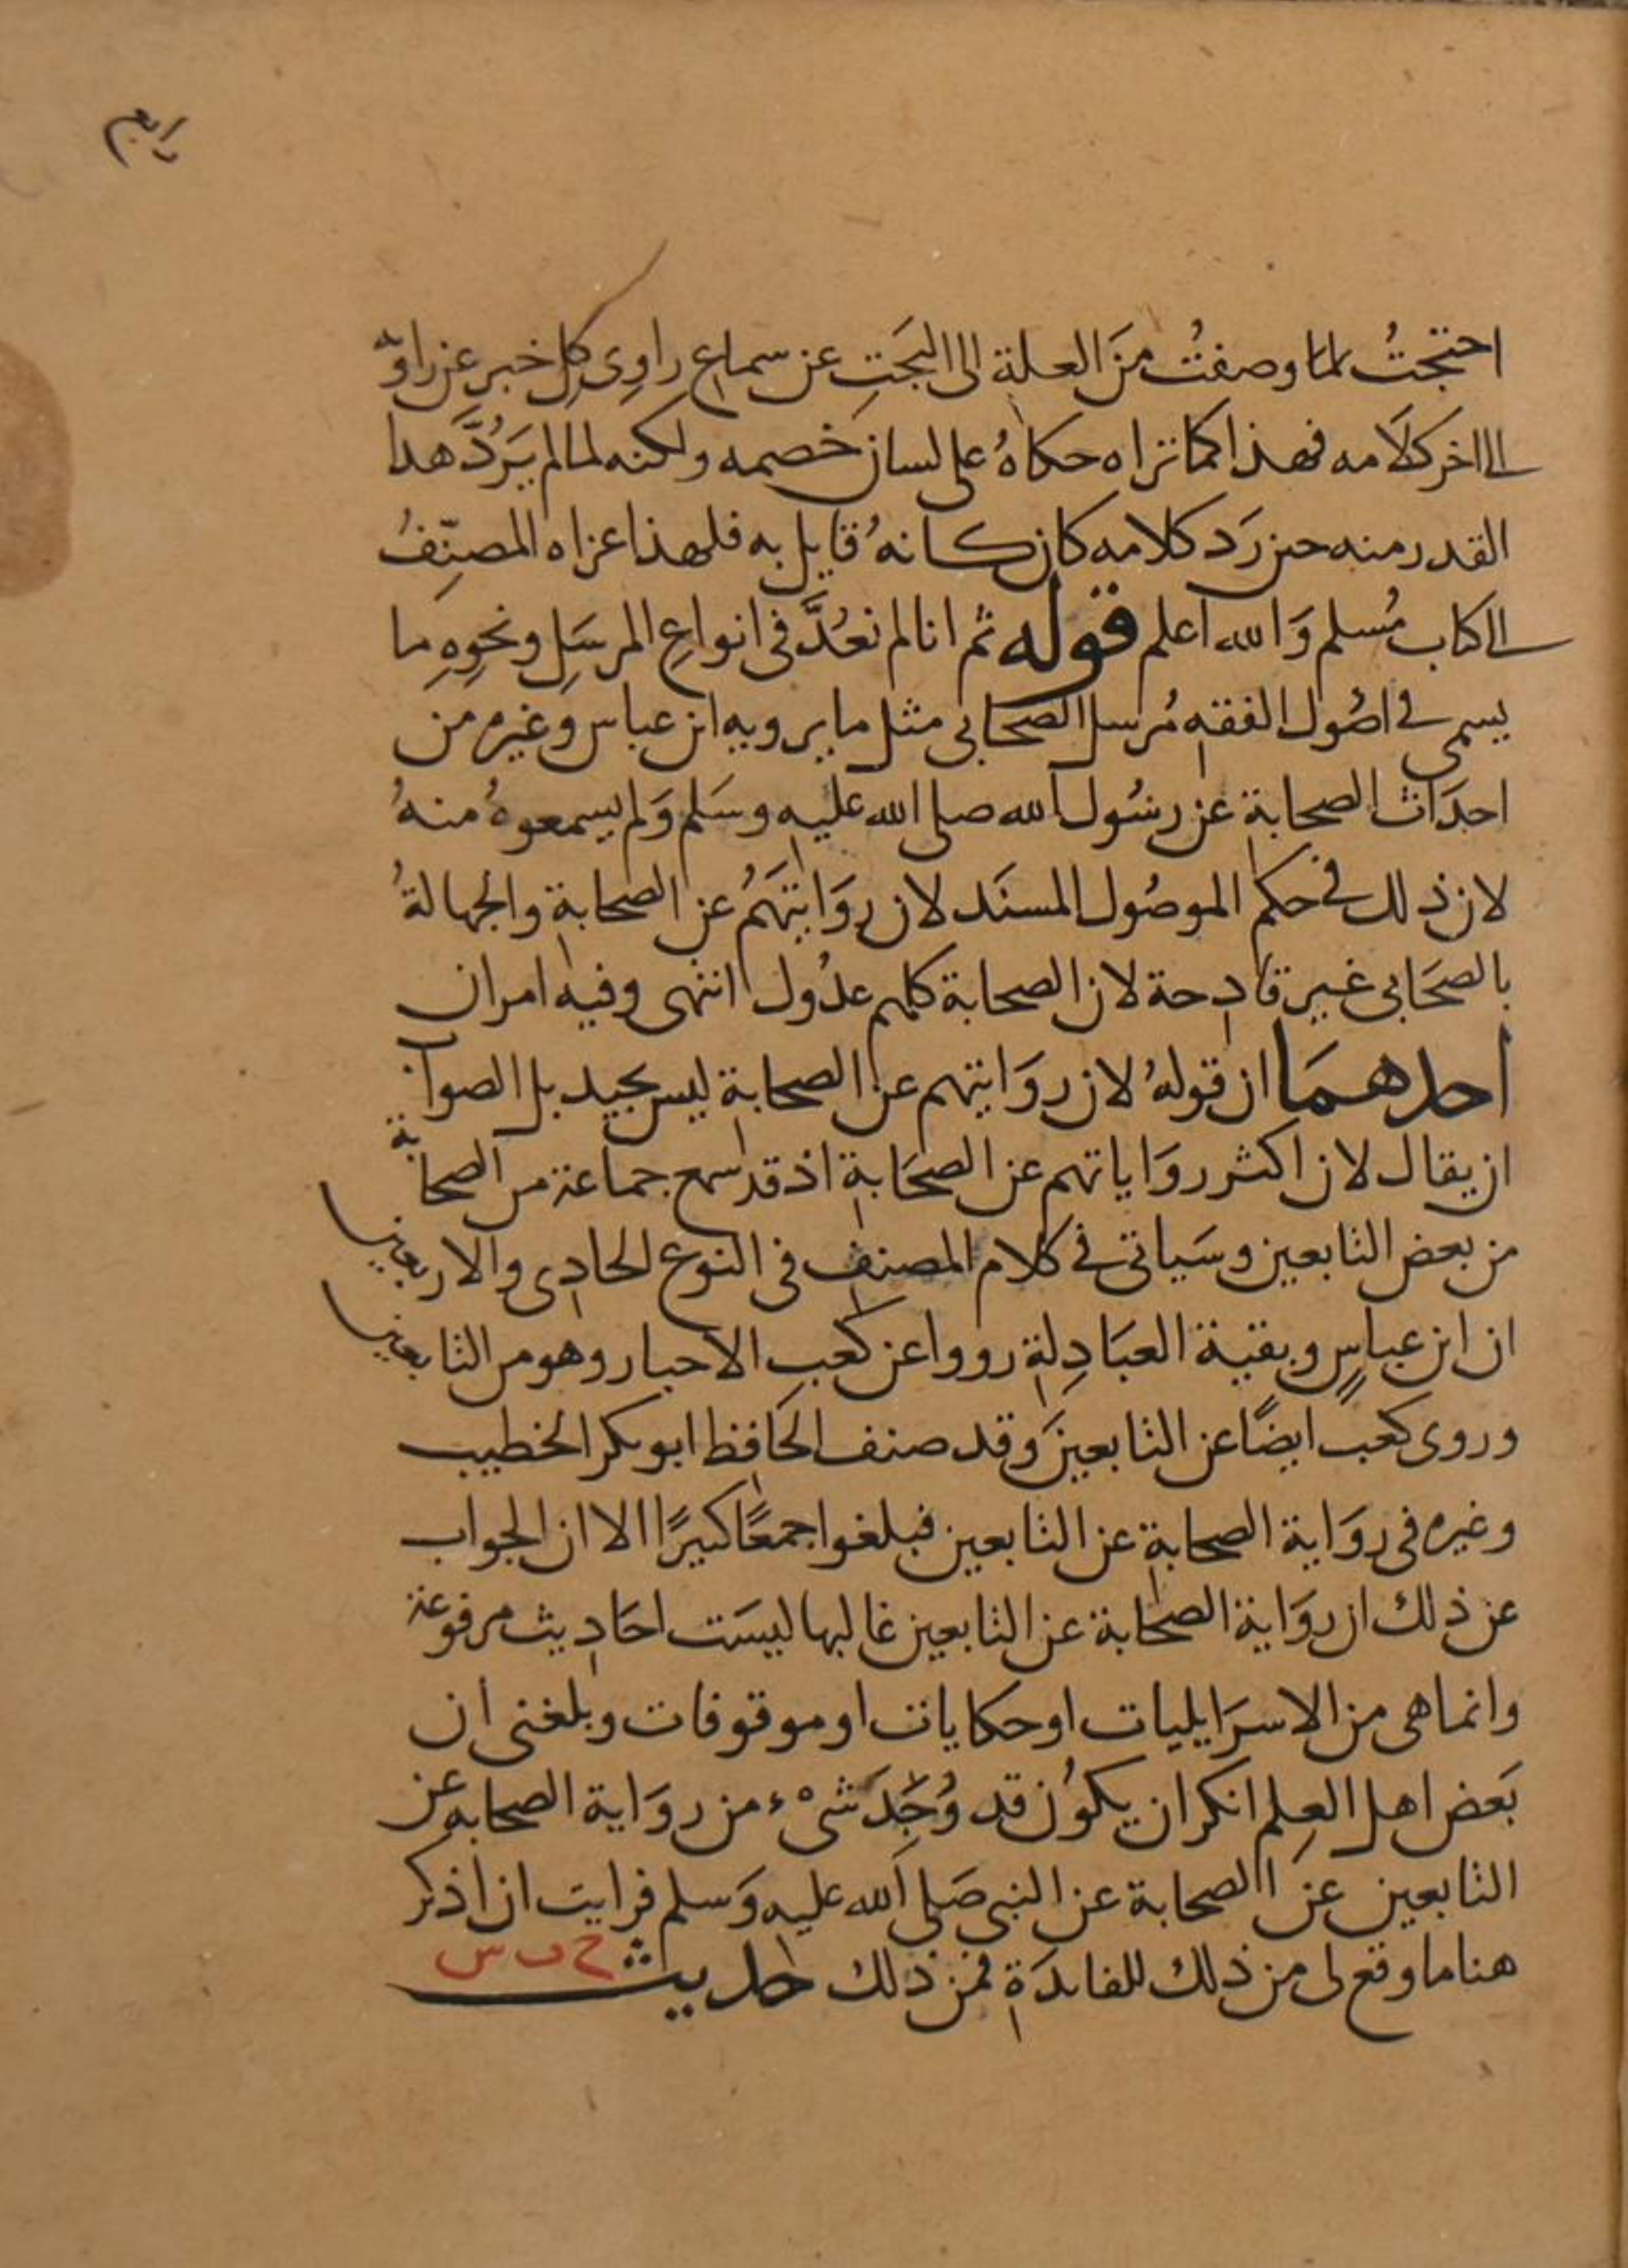 رابع
احتجتُ لما وصفتُ منَ العلة الى البحَث عن سماع راوِى كل خبر عن راويه
الى اخر كلَامه فهذا كما تراه حكاهُ على لسان خصمه ولكنه لما لم يَرُدَّ هذا
القدر منه حين رَد كلامه كان كانهُ قايل به فلهذا عزاه المصنِّفُ
الى كتاب مُسلم وَالله اعلم قوله ثم انا لم نعُدَّ فى انواعِ المرسَلِ ونحوِهِ ما
يسمى فى اصُول الفقه مُرسل الصحَابى مثل ما يرويه ابن عباس وغيره من
احدَاث الصحابة عن رسُول الله صلى الله عليه وسَلم وَلم يسمعوهُ منهُ
لان ذلك فى حكم الموصُول المسنَد لان روَايتهَمُ عن الصحابة والجهالةُ
بالصحَابى غير قادحة لان الصحابة كلهم عدُول انتهى وفيه امران
احدهمَا ان قولهُ لان روَايتهم عن الصحابة ليس بجيد بل الصواب
ان يقال لان اكثر روَاياتهم عن الصحَابة اذ قد سمع جماعة من الصحابة
من بعض التابعين وسَياتى فى كلام المصنف فى النوع الحادى والاربعين
ان ابن عباسٍ وبقية العبَادِلة رووا عن كعب الاحبار وهو من التابعين
وروى كعب ايضًا عن التابعينَ وقد صنف الحَافظ ابو بكر الخطيب
وغيره فى روَاية الصحابة عن التابعين فبلغوا جمعًا كبيرًا الا ان الجواب
عن ذلك ان روَاية الصحَابة عن التابعين غالبها ليسَت احَاديث مرفوعة
وانما هى من الاسرَايليات او حكايات او موقوفات وبلغنى ان
بَعض اهل العِلم انكر ان يكوُن قد وُجِدَ شىْء من روَاية الصحابه عن
التابعين عن الصحابة عن النبى صَلى الله عليه وَسلم فرايت ان اذكر
هنا ما وقع لى من ذلك للفايدَة فمن ذلك حديث